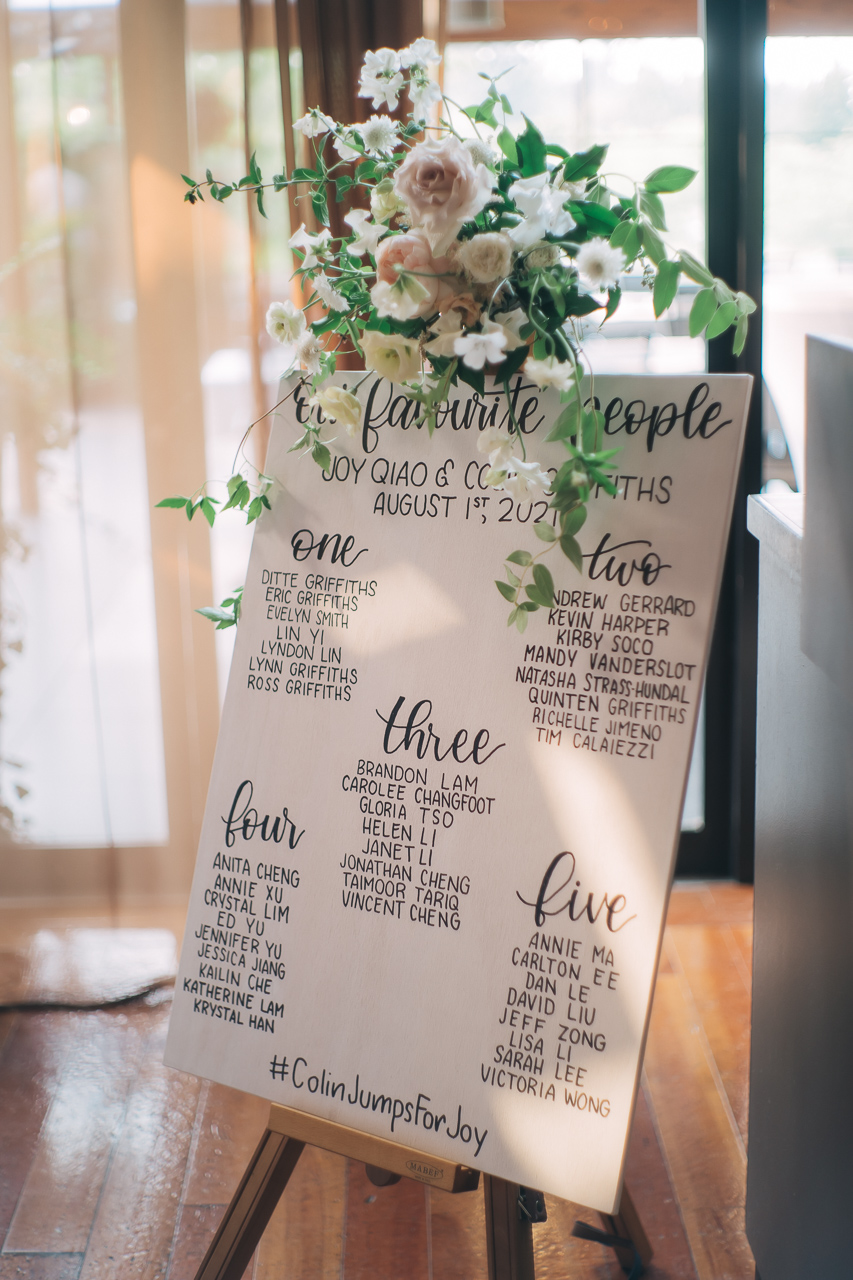 Our favourite people
JOY QIAO & GRIFFITHS
AUGUST 1ST, 2021
one
DITTE GRIFFITHS
ERIC GRIFFITHS
EVELYN SMITH
LIN YI
LYNDON LIN
LYNN GRIFFITHS
ROSS GRIFFITHS
two
ANDREW GERRARD
KEVIN HARPER
KIRBY SOCO
MANDY VANDERSLOT
NATASHA STRASS-HUNDAL
QUINTEN GRIFFITHS
RICHELLE JIMENO
TIM CALAIEZZI
three
BRANDON LAM
CAROLEE CHANGFOOT
GLORIA TSO
HELEN LI
JANET LI
JONATHAN CHENG
TAIMOOR TARIQ
VINCENT CHENG
four
ANITA CHENG
ANNIE XU
CRYSTAL LIM
ED YU
JENNIFER YU
JESSICA JIANG
KAILIN CHE
KATHERINE LAM
KRYSTAL HAN
five
ANNIE MA
CARLTON EE
DAN LE
DAVID LIU
JEFF ZONG
LISA LI
SARAH LEE
VICTORIA WONG
#ColinJumpsForJoy
MABEF